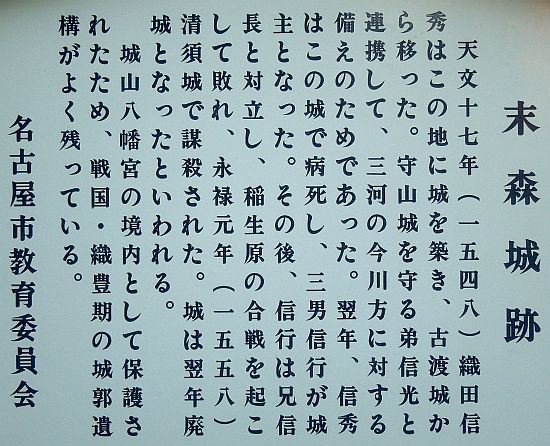 末森城跡
天文十七年（一五四八）織田信
秀はこの地に城を築き、古渡城か
ら移った。守山城を守る弟信光と
連携して、三河の今川方に対する
備えのためであった。翌年、信秀
はこの城で病死し、三男信行が城
主となった。その後、信行は兄信
長と対立し、稲生原の合戦を起こ
して敗れ、永禄元年（一五五八）
清須城で謀殺された。城は翌年廃
城となったといわれる。
城山八幡宮の境内として保護さ
れたため、戦国・織豊期の城郭遺
構がよく残っている。
名古屋市教育委員会